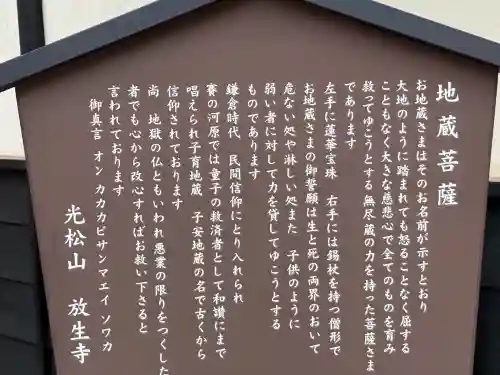 地蔵菩薩
お地蔵さまはそのお名前が示すとおり
大地のように踏まれても怒ることなく屈する
こともなく大きな慈悲心で全てのものを育み
救ってゆこうとする無尽蔵の力を持った菩薩さま
であります
左手に蓮華宝珠 右手には錫杖を持つ僧形で
お地蔵さまの御誓願は生と死の両界のおいて
危ない処や淋しい処また 子供のように
弱い者に対して力を貸してゆこうとする
ものであります
鎌倉時代 民間信仰にとり入れられ
賽の河原では童子の救済者として和讃にまで
唱えられ子育地蔵 子安地蔵の名で古くから
信仰されております
尚 地獄の仏ともいわれ悪業の限りをつくした
者でも心から改心すればお救い下さると
言われております
御真言 オン カカカビサンマエイ ソワカ
光松山 放生寺